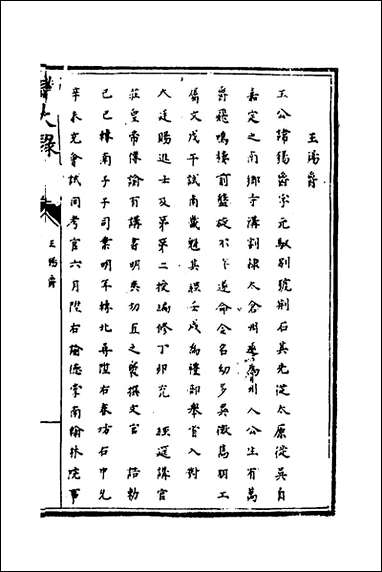 王錫爵
王公諱錫爵字元馭別號荊石其先從太原從吳自
嘉定之南鄉寺溝割隸太倉州遂為州人公生有萬
雀飛鳴繞前盤旋不下遂命今名幼多異徵為羽工
屬文戊午試南畿魁其經壬戌為禮部舉首入對
大廷賜進士及第第二授編修丁卯充 經筵講官
莊皇帝傳諭有講書明爽切直之褒撰文官 誥勅
己巳陞南子子司業明年陞北再陞右春坊右中允
辛未充會試同考官六月陞右諭德掌南翰林院事
獻大錄
王錫爵